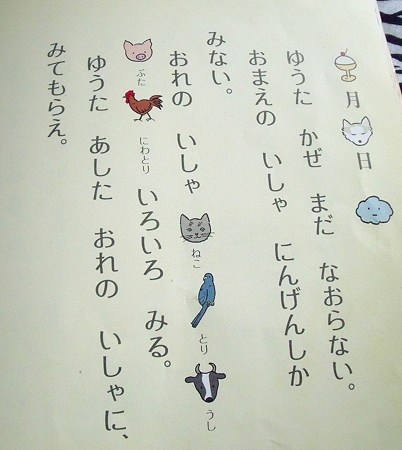 月 日
ゆうた かぜ まだ なおらない。
おまえの いしゃ にんげんしか
みない。
おれの いしゃ ねこ とり うし
ぶた にわとり いろいろ みる。
ゆうた あした おれの いしゃに、
みてもらえ。